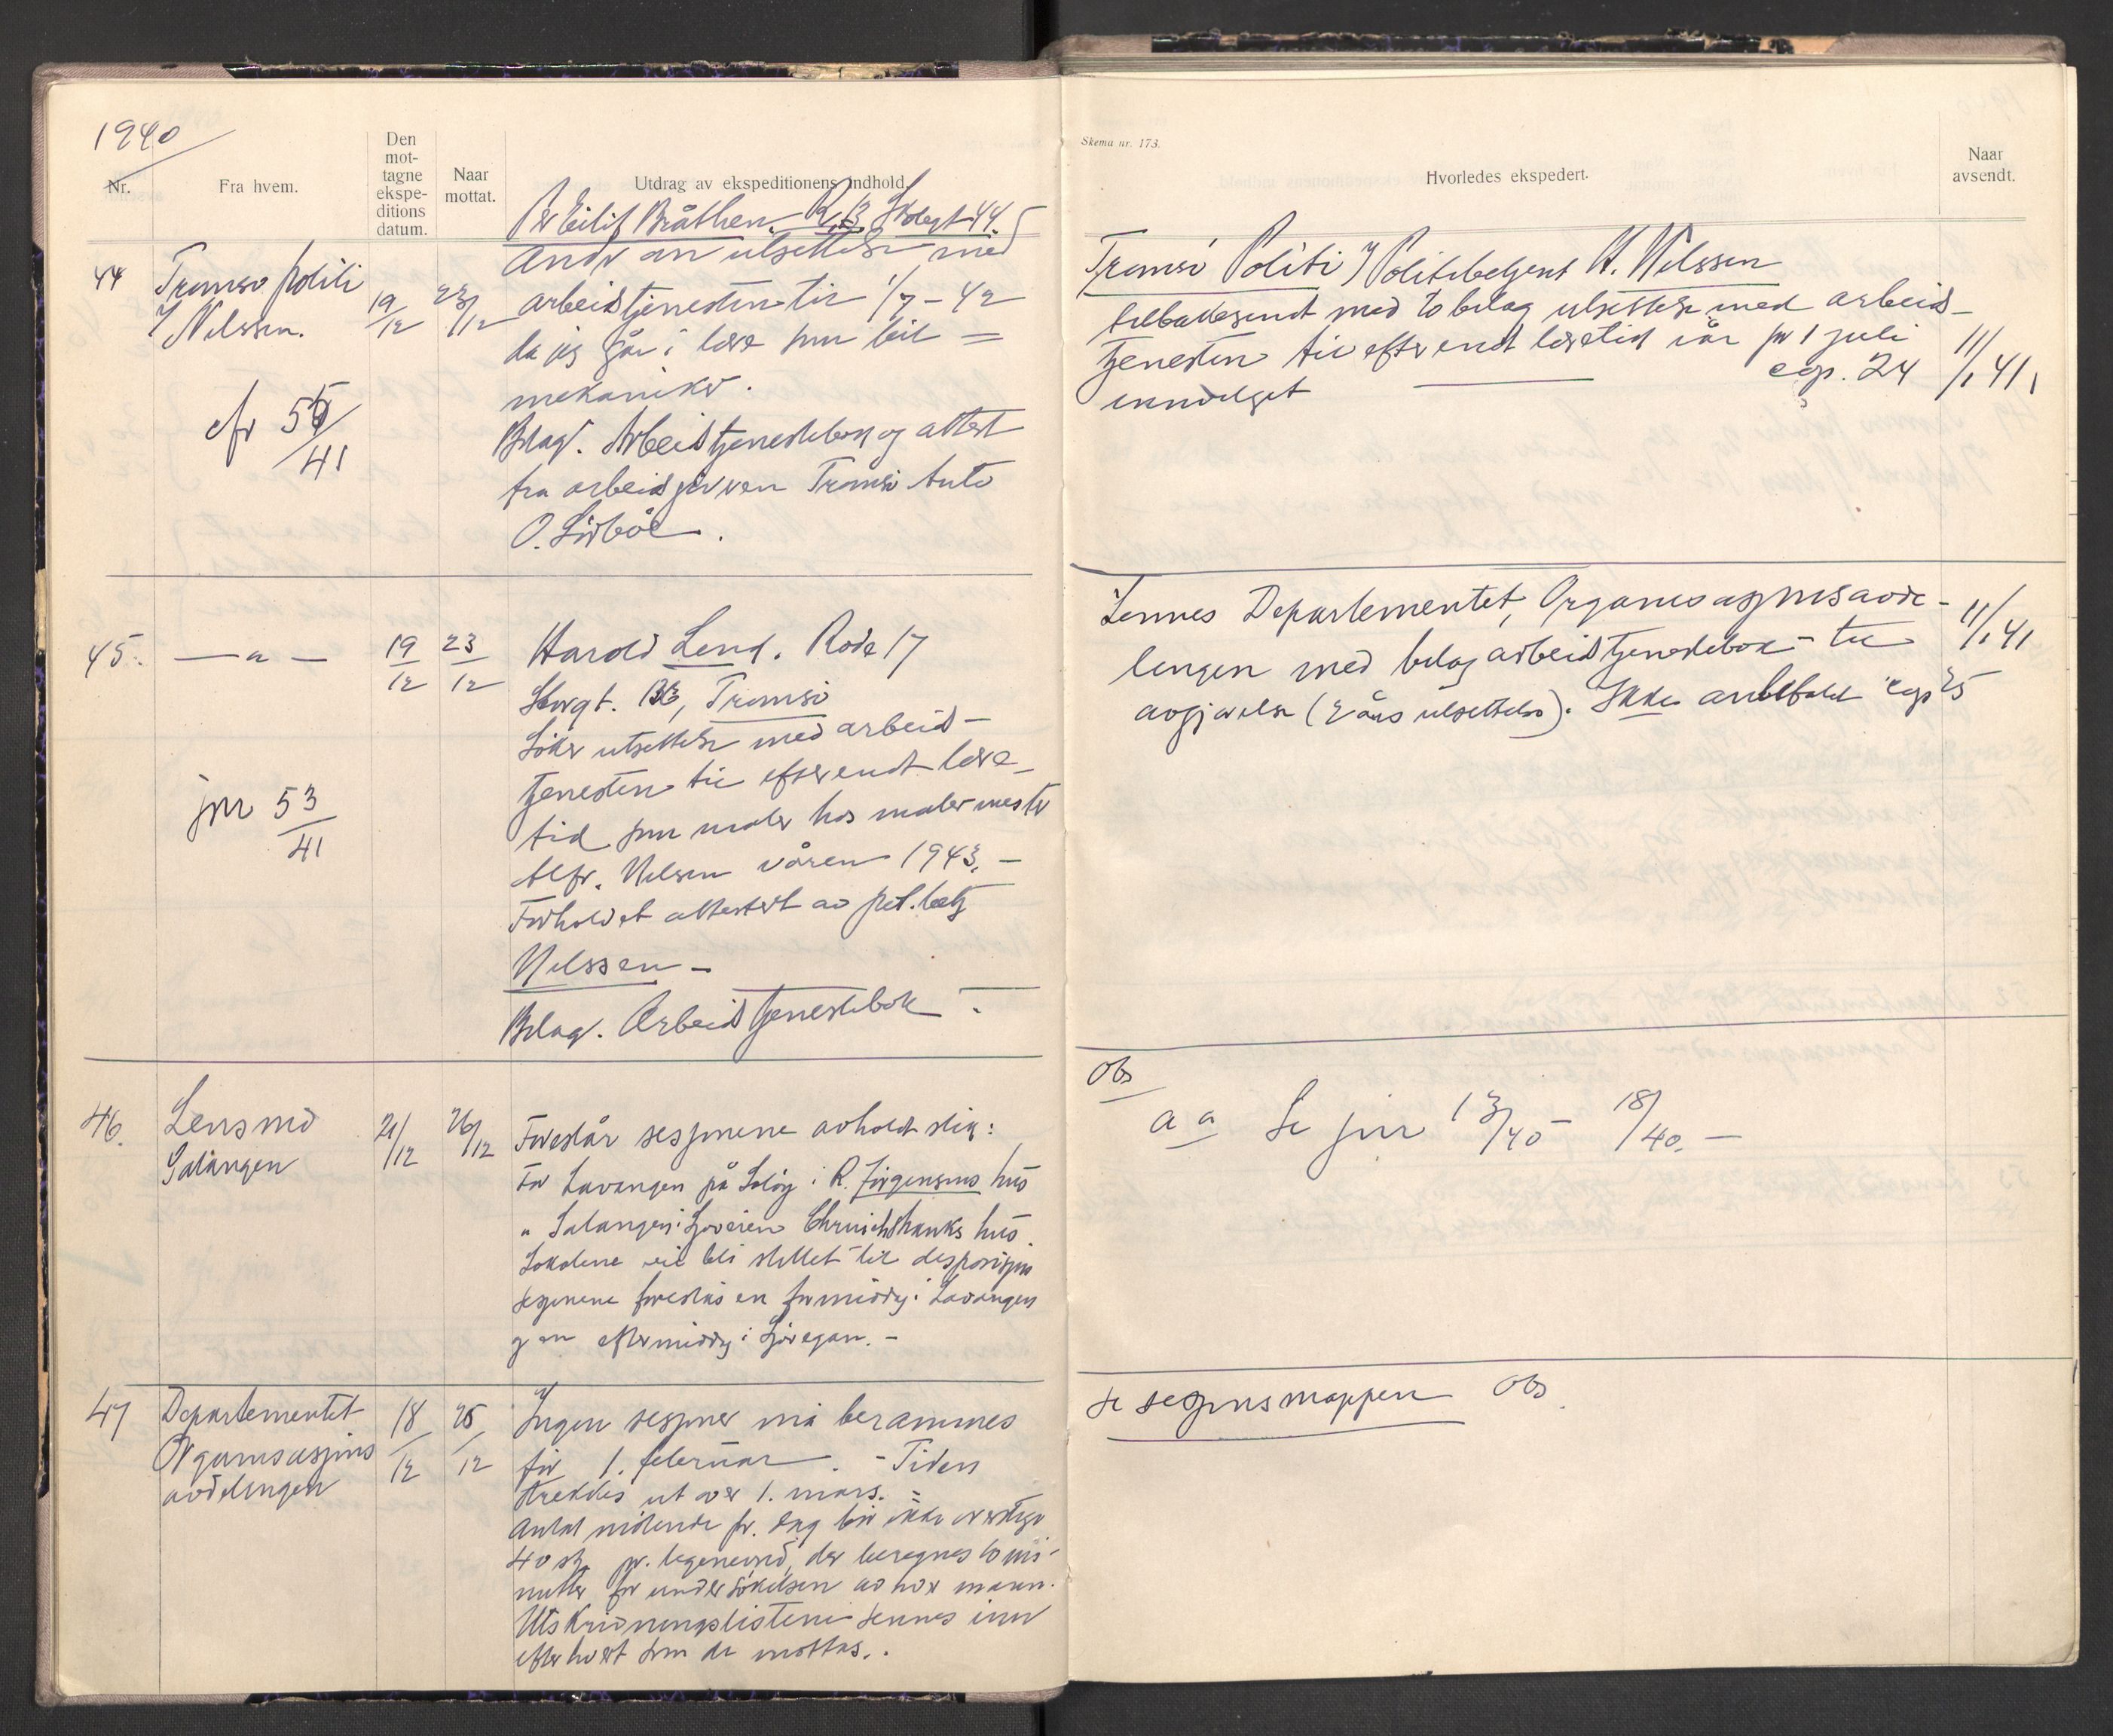 1940
Nr.
Fra hvem.
Den
mot-
tagne
ekspe-
ditions
datum.
Naar
mottat.
Utdrag av ekspeditionens indhold.
44
Tromsø politi
Nilssen.
19/12
23/12
cfr 55/41
Per Eilif Bråthen. R. 13 Skolegt 44.
Andr om utsettelse med
arbeidstjenesten til 1/7 - 42
da jeg går i lære som bil =
mekaniker.
Bilag. Arbeidstjenestebok og attest
fra arbeidsgiveren Tromsø Auto
O. Sørbøe.
45.
— " —
19/12
23/12
jnr 53/41
Harold Lend. Rode 17
Storgt. 133, Tromsø
Søker utsettelse med arbeid-
tjenesten til efter endt lære-
tid som maler hos malermester
Alfr. Nilsen våren 1943. -
Forholdet attestert av pol.betj
Nilssen -
Bilag. Arbeidstjenestebok -.
46.
Lensmd
Salangen
21/12
26/12
Foreslår sesjonene avholdt slik:
For Lavangen på Soløy i R. Jørgensens hus
" Salangen i Sjøveien hus.
Lokalene vil bli stillet til disposisjon
Sesjonene foreslås en formiddag i Lavangen
og en eftermiddag i Sjøvegan. -
47
Departementet
Organisasjons
avdelingen
18/12
25/12
Ingen sesjoner må berammes
før 1. februar. - Tiden
strekkes ut over 1. mars. =
Antal møtende pr. dag bør ikke overstige
40 stk. pr. legenevnd, der beregnes 10 mi-
nutter for undersøkelsen av hver mann.
Utskrivningslistene sendes inn
efterhvert som de mottas..
Skema nr. 173.
Hvorledes ekspedert.
Naar
avsendt.
Tromsø Politi Politibetjent H. Nilssen
tilbakesendt med to bilag utsettelse med arbeid-
tjenesten til efter endt læretid iår pr 1 juli
innvilget
exp. 24
11/1 41
Sennes Departementet, Organisasjonsavde-
lingen med bilag arbeidstjenestebok - til
avgjørelse (2 års utsettelse). Ikke anbefalt exp 25
11/1 41
Obs
a a Se jnr 13/40 - 18/40. -
Se sesjonsmappen Obs.